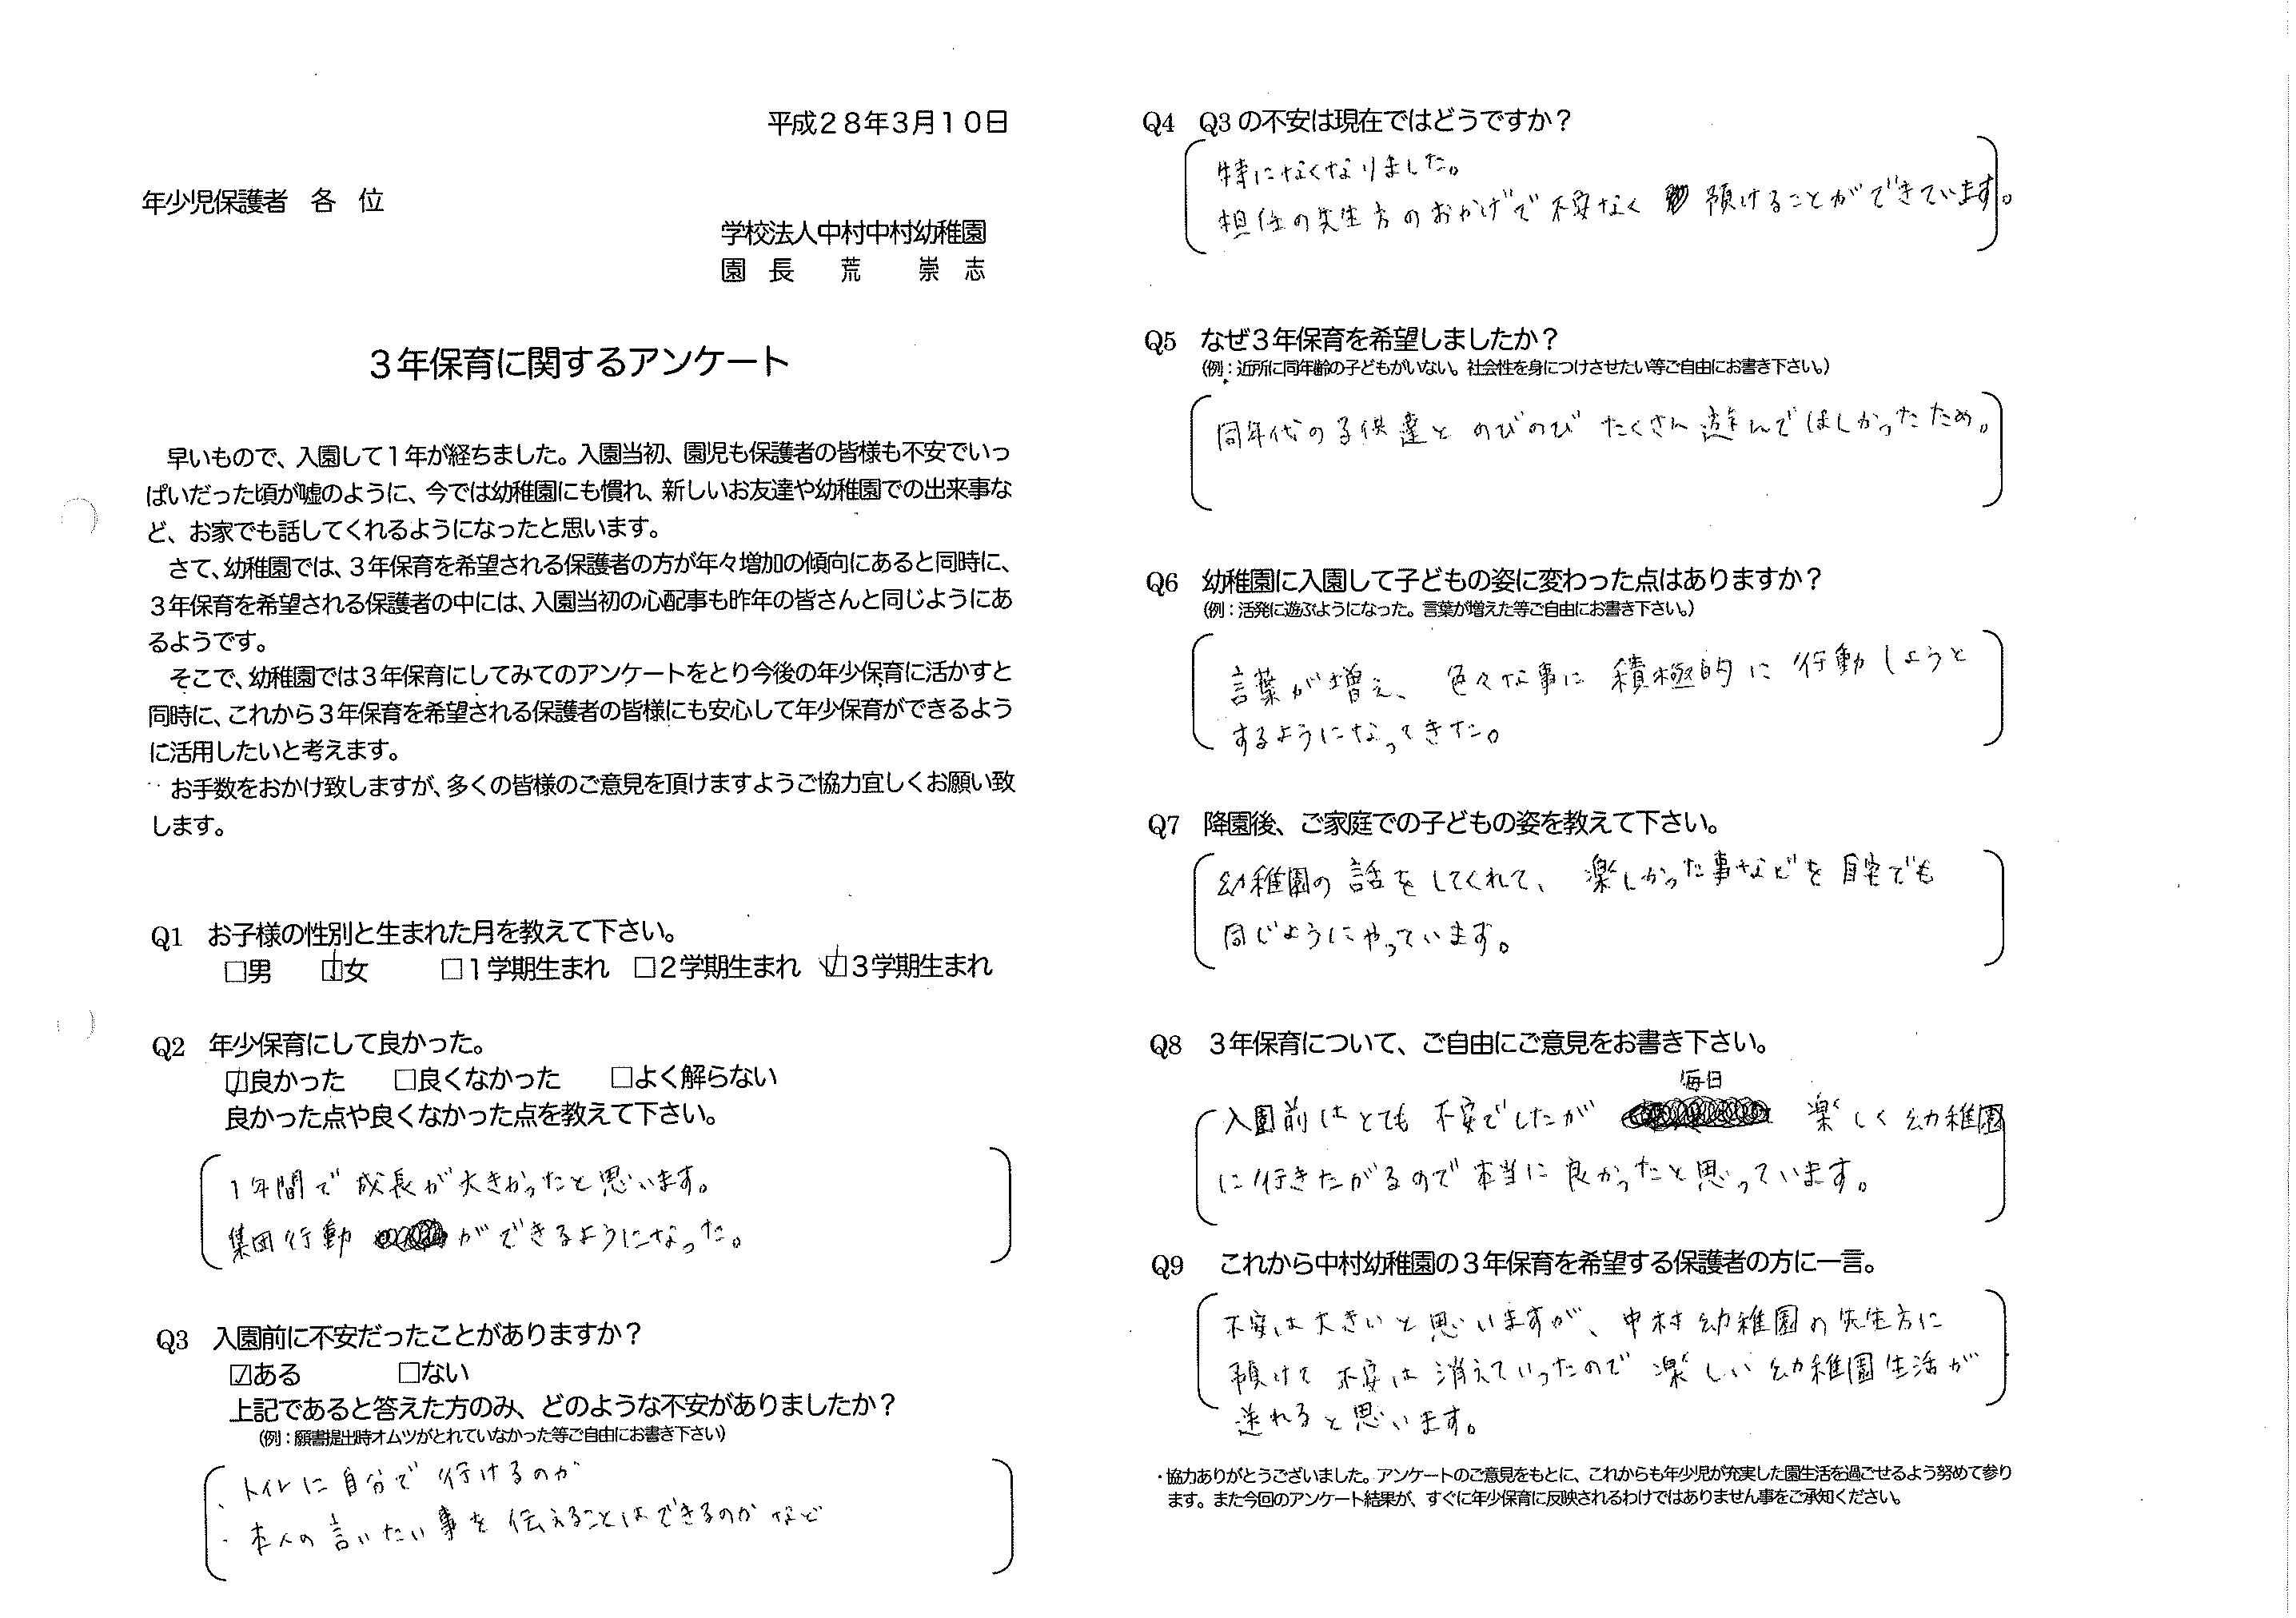 平成２８年３月１０日
年少児保護者　各　位
学校法人中村中村幼稚園
園　長　　荒　　崇　志
３年保育に関するアンケート
早いもので、入園して１年が経ちました。入園当初、園児も保護者の皆様も不安でいっ
ぱいだった頃が嘘のように、今では幼稚園にも慣れ、新しいお友達や幼稚園での出来事な
ど、お家でも話してくれるようになったと思います。
さて、幼稚園では、３年保育を希望される保護者の方が年々増加の傾向にあると同時に、
３年保育を希望される保護者の中には、入園当初の心配事も昨年の皆さんと同じようにあ
るようです。
そこで、幼稚園では３年保育にしてみてのアンケートをとり今後の年少保育に活かすと
同時に、これから３年保育を希望される保護者の皆様にも安心して年少保育ができるよう
に活用したいと考えます。
お手数をおかけ致しますが、多くの皆様のご意見を頂けますようご協力宜しくお願い致
します。
Q1　お子様の性別と生まれた月を教えて下さい。
□男　☑女　□１学期生まれ　□２学期生まれ　☑３学期生まれ
Q2　年少保育にして良かった。
☑良かった　□良くなかった　□よく解らない
良かった点や良くなかった点を教えて下さい。
１年間で成長が大きかったと思います。
集団行動ができるようになった。
Q3　入園前に不安だったことがありますか？
☑ある　□ない
上記であると答えた方のみ、どのような不安がありましたか？
（例：願書提出時オムツがとれていなかった等ご自由にお書き下さい）
・トイレに自分で行けるのか
・本人の言いたい事を伝えることはできるのかなど
Q4　Q3の不安は現在ではどうですか？
特になくなりました。
担任の先生方のおかげで不安なく預けることができています。
Q5　なぜ３年保育を希望しましたか？
（例：近所に同年齢の子どもがいない。社会性を身につけさせたい等ご自由にお書き下さい。）
同年代の子供達とのびのびたくさん遊んでほしかったため。
Q6　幼稚園に入園して子どもの姿に変わった点はありますか？
（例：活発に遊ぶようになった。言葉が増えた等ご自由にお書き下さい。）
言葉が増え、色々な事に積極的に行動しようと
するようになってきた。
Q7　降園後、ご家庭での子どもの姿を教えて下さい。
幼稚園の話をしてくれて、楽しかった事などを自宅でも
同じようにやっています。
Q8　３年保育について、ご自由にご意見をお書き下さい。
毎日
入園前はとても不安でしたが　楽しく幼稚園
に行きたがるので本当に良かったと思っています。
Q9　これから中村幼稚園の３年保育を希望する保護者の方に一言。
不安は大きいと思いますが、中村幼稚園の先生方に
預けて不安は消えていったので楽しい幼稚園生活が
送れると思います。
・協力ありがとうございました。アンケートのご意見をもとに、これからも年少児が充実した園生活を過ごせるよう努めて参り
ます。また今回のアンケート結果が、すぐに年少保育に反映されるわけではありません事をご承知ください。